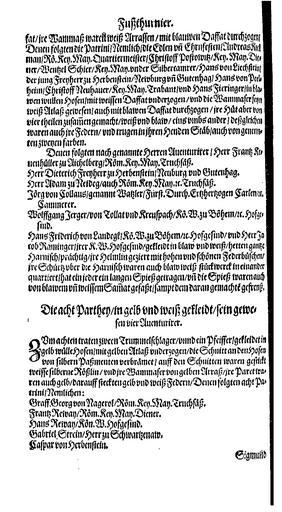 Fußthurnier.
sat/ire Wammaß waren weiß Atrassen/mit blauwen Daffat durchzogen/
Denen folgten die Patrini/Nemlich/die Edlen vñ Ehrnfesten/Andreas
man/Röm. Key. May. Quartiermeister/Christoff Key. May. Die-
ner/Wentzel Schier/Key. May. vnder Silbercamrer/Hans von Liechtstein/
der jung Freyherr zu Herbenstein/Neuburg vñ Gutenhag/Hans von
heim/Christoff Neuhauer/Key. May. Trabant/vnd Hans Fieringer/in bla-
wen wüllen Hosen/mit weissen Daffat vnderzogen/vnd die Wammaser seyn
weiß Atlaß gewesen/auch mit blawen Daffat durchzogen/jre Hüt aber von
vier theilen zusamen gemacht/weiß vnd blaw/eins vmbs ander/deßgleichen
waren auch jre Federn/vnd trugen in jren Henden Stäb/auch von genem-
ten zweyen farben.
Denen folgten nach genannte Herren Auenturirer/Herr Frantz
uenhüller zu Aichelberg/Röm. Key. May. Truchsäß.
Herr Dieterich Freyherr zu Herbenstein/Neuburg vnd Gutenhag.
Herr Adam zu Neidegg auch Röm. Key. May. ꝛc. Truchsäß.
Jörg von Collaus/genannt Watzler/Fürst. Durch. Ertzhertzogen Carlen ꝛc.
Cammerer.
Wolffgang Jerger/von Tollat vnd Kreuspach/Kö. W. zu Böhem/ꝛc. Hofge-
sind.
Hans Friderich von Landegk/Kö. W. zu Böhem/ꝛc. Hofgesinde/vnd Herr Ja-
cob Räminger/jrer K. W. Hofgesind/gekleid in blaw vnd weiß/hetten gantze
Harnisch/prächtig/jre Helmlin geziert mit hohen vnd schönen Federbüschen/
jre Schürtz vber die Harnisch waren auch blaw vnd weiß stückwerck in einander
quartiert/hat ein jeder ein langen Spieß getragen/vñ die Spieß waren auch
von blauwen vñ weissem Samat gefaßt/sampt dem daran gemacht gefrens.
Die acht Parthey/in gelb vnd weiß gekleidt/sein gewe-
sen vier Auenturirer.
ZVm achten traten zween Trummelschlager/vnd ein Pfeiffer/gekleidet in
gelb wülle Hosen/mit gelben Atlaß vnderzogen/die Schnitt an den Hosen
von silbern Paßmenen verbrämet/auff den Schnitten waren gestickt
weisse silberne Rößlin/vnd jre Wammaser von gelben Atlaß/jre Paret wa-
ren auch gelb/darauff steckten gelb vnd weiß Federn/Denen folgten acht Pa-
trini/Nemlichen:
Graff Georg von Nagerol/Röm. Key. May. Truchsäß.
Frantz Reway/Röm. Key. May. Diener.
Hans Reway/Kön. W. Hofgesind.
Gabriel Strein/Herr zu Schwartzenaw.
Caspar von Herbenstein.
Sigmund